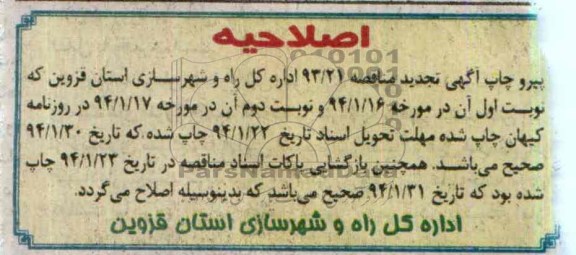 اصلاحیه
پیرو چاپ آگهی تجدید مناقصه ۹۳/۲۱ اداره کل راه و شهرسازی استان قزوین که
نوبت اول آن در مورخه ۹۴/۱/۱۶ و نوبت دوم آن در مورخه ۹۴/۱/۱۷ در روزنامه
کیهان چاپ شده مهلت تحویل اسناد تاریخ ۹۴/۱/۲۲ چاپ شده که تاریخ ۹۴/۱/۳۰
صحیح می‌باشد. همچنین بازگشایی پاکات اسناد مناقصه در تاریخ ۹۴/۱/۲۳ چاپ
شده بود که تاریخ ۹۴/۱/۳۱ صحیح می‌باشد که بدینوسیله اصلاح می‌گردد.
اداره کل راه و شهرسازی استان قزوین
ParsNamadData